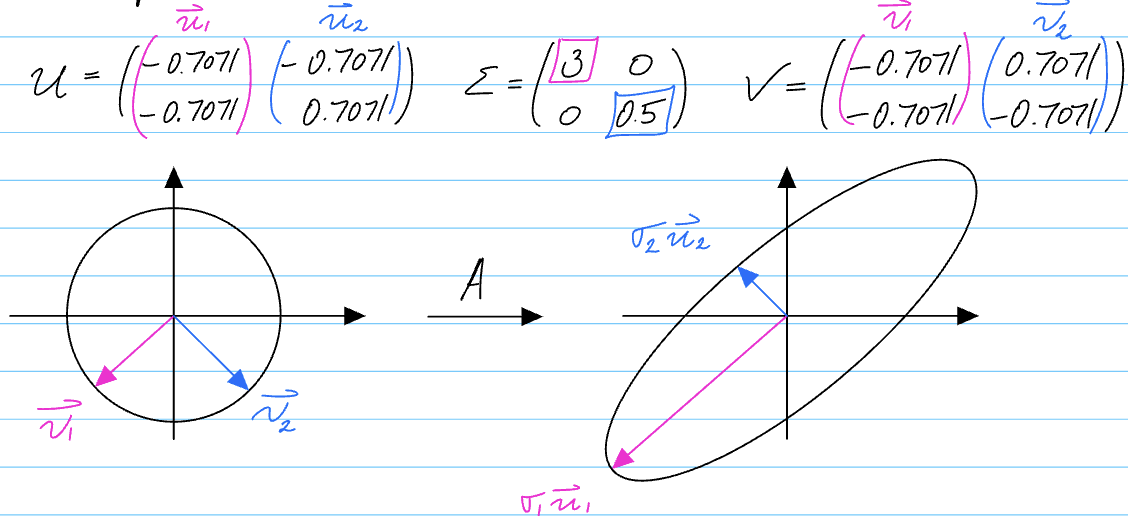 u⃗₁ u⃗₂ v⃗₁ v⃗₂
U = ((-0.7071 -0.7071) (-0.7071 0.7071)) Σ = (3 0 0 0.5) V = ((-0.7071 -0.7071) (0.7071 -0.7071))
σ₂u⃗₂
A
v⃗₁ v⃗₂
σ₁u⃗₁